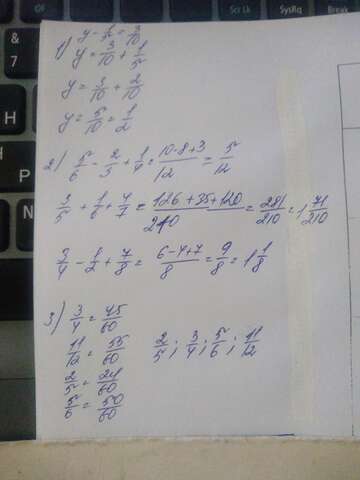 8
7
Scr Lk
SysRq
Break
1) y - 1/5 = 3/10
y = 3/10 + 1/5
y = 3/10 + 2/10
y = 5/10 = 1/2
2) 5/6 - 2/3 + 1/4 = (10-8+3)/12 = 5/12
3/5 + 1/6 + 4/7 = (126+35+120)/210 = 281/210 = 1 71/210
3/4 - 1/2 + 7/8 = (6-4+7)/8 = 9/8 = 1 1/8
3) 3/4 = 45/60
11/12 = 55/60 2/5 ; 3/4 ; 5/6 ; 11/12
2/5 = 24/60
5/6 = 50/60